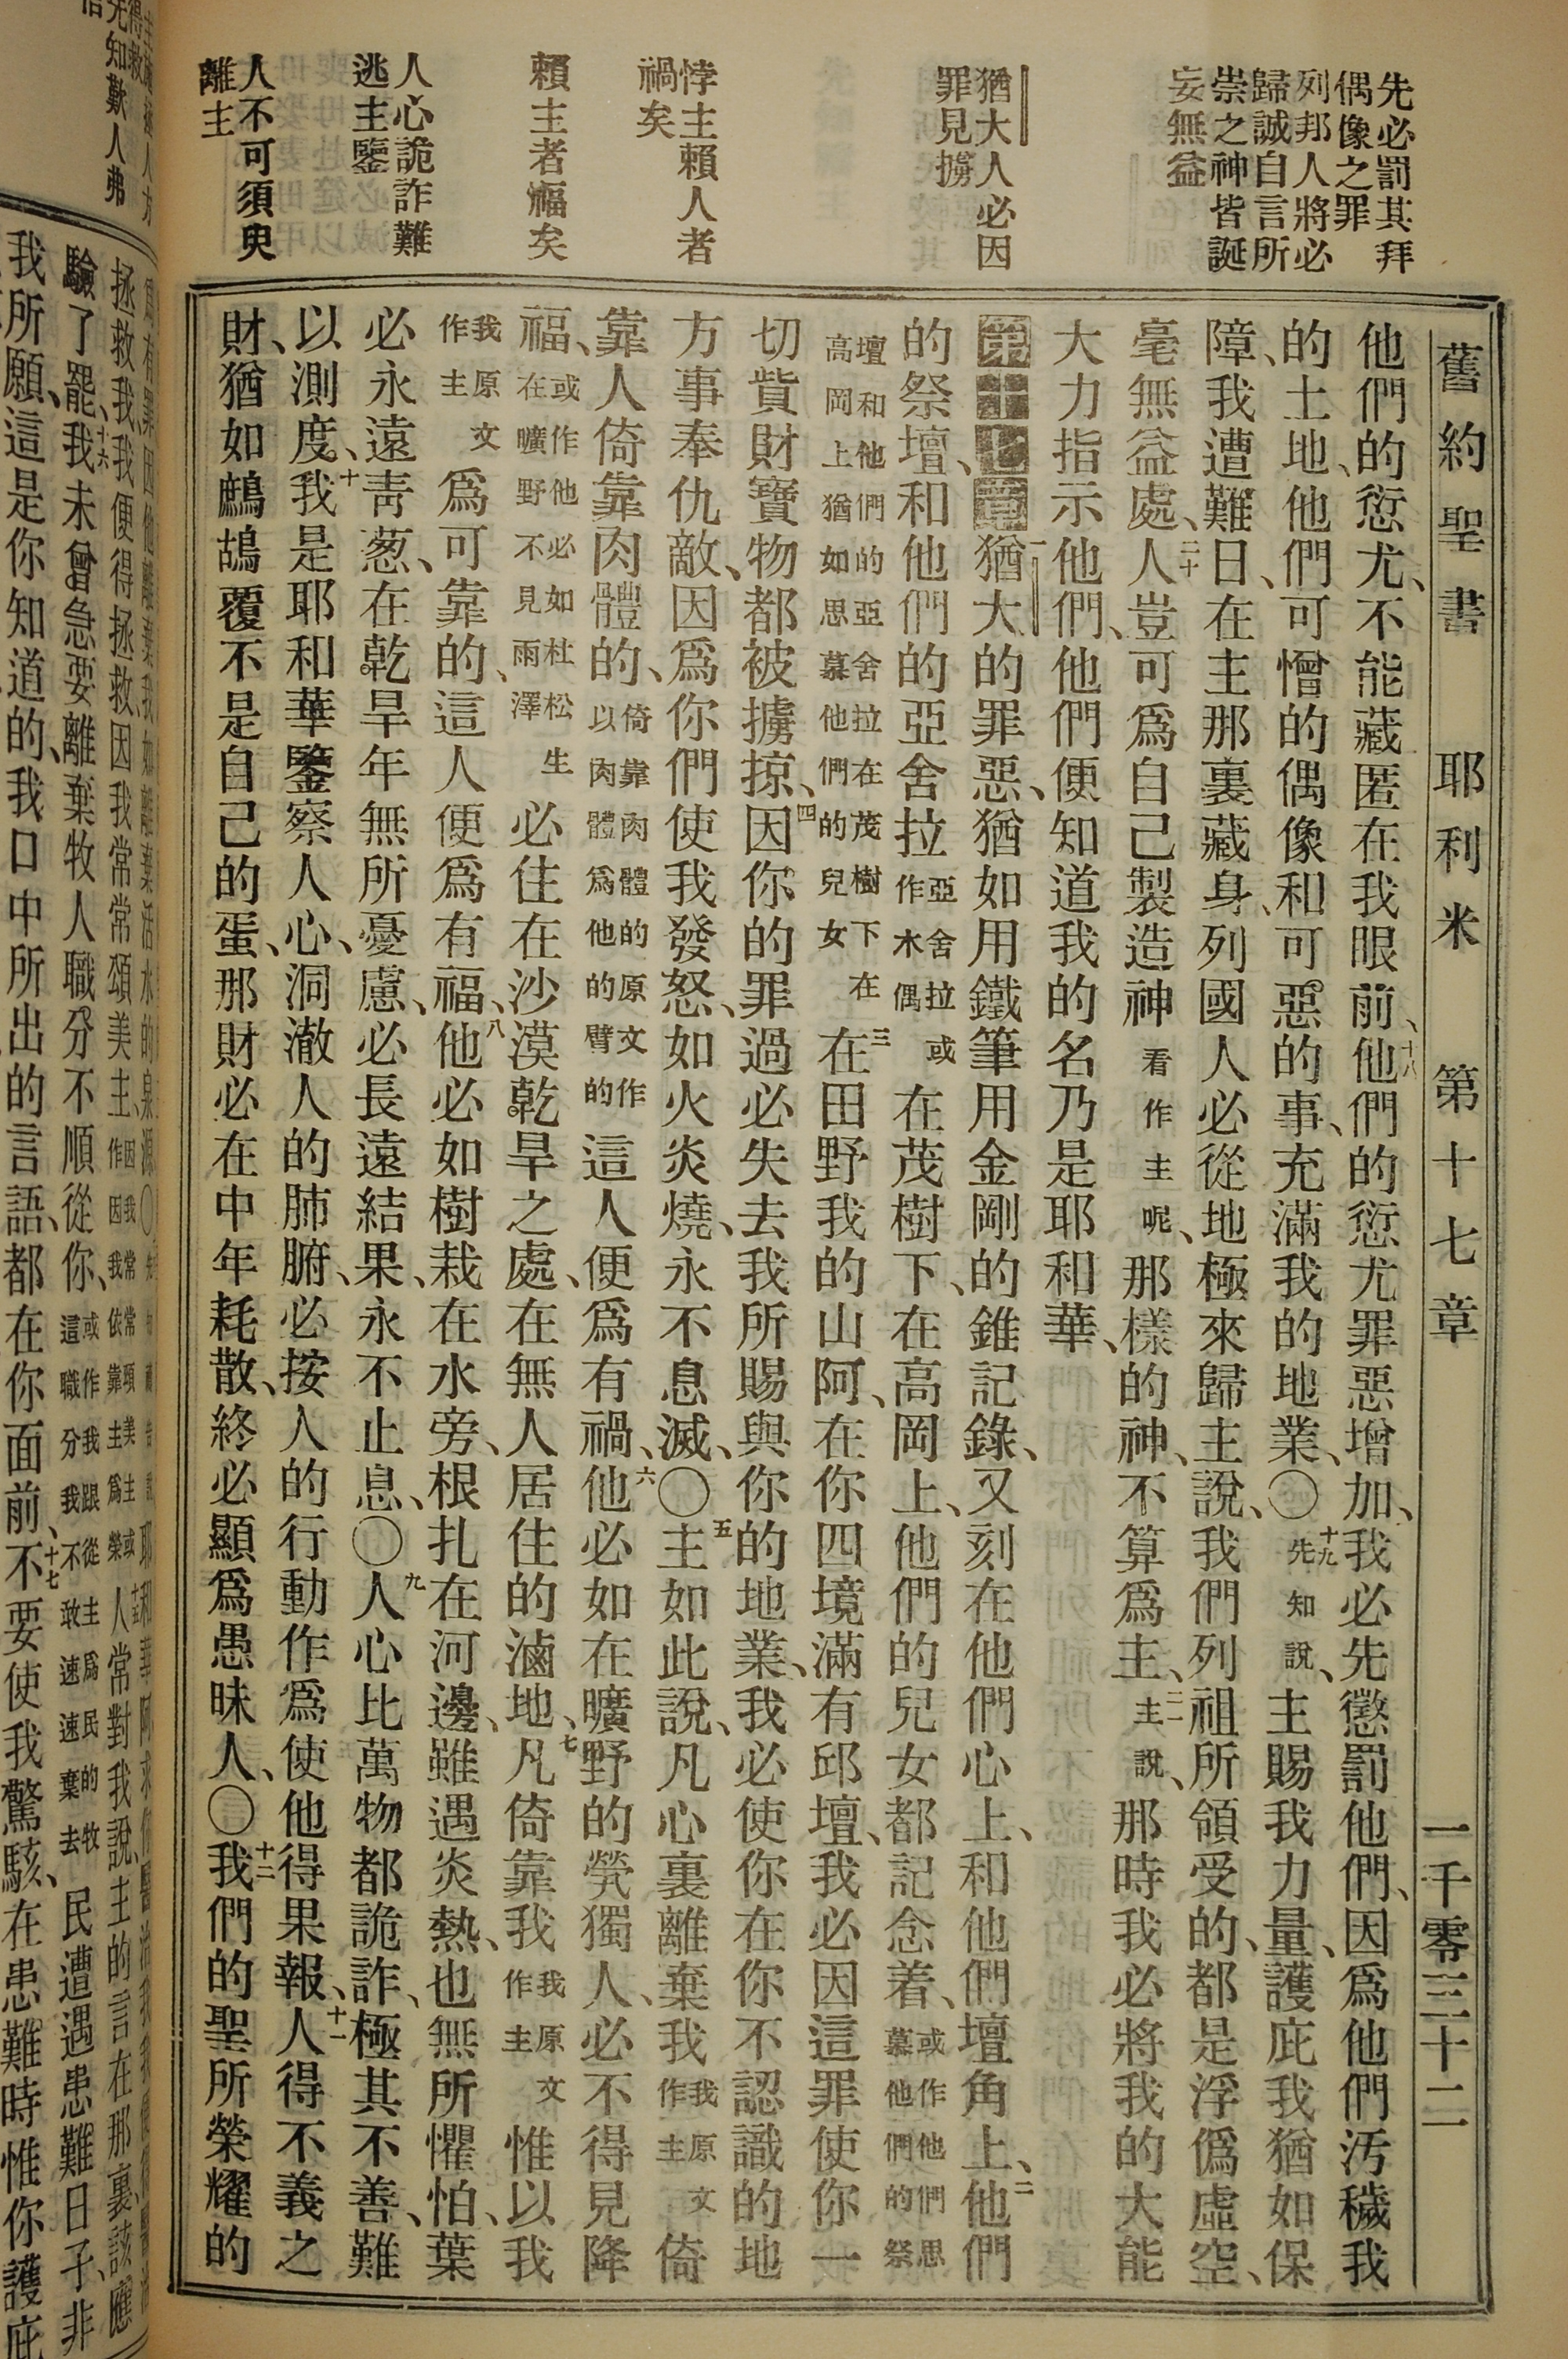 舊約聖書　耶利米　第十七章　一千零三十二
先必罰其拜
偶像之罪
列邦人將必
歸誠自言所
崇之神皆誕
妄無益
猶大人必因
罪見擄
悖主賴人者
禍矣
賴主者福矣
人心詭詐難
逃主鑒
人不可須臾
離主
他們的愆尤、不能藏匿在我眼前、十八他們的愆尤罪惡增加、我必先懲罰他們、因爲他們汚穢我
的土地、他們可憎的偶像和可惡的事、充滿我的地業、〇十九先知說、主賜我力量、護庇我猶如保
障、我遭難日、在主那裏藏身、列國人必從地極來歸主說、我們列祖所領受的、都是浮僞虛空、
毫無益處、二十人豈可爲自己製造神看作主呢、那樣的神、不算爲主、二一主說、那時我必將我的大能
大力指示他們、他們便知道我的名乃是耶和華、
第十七章一猶大的罪惡、猶如用鐵筆用金剛的錐記錄、又刻在他們心上、和他們壇角上、二他們
的祭壇、和他們的亞舍拉亞舍拉或作木偶在茂樹下、在高岡上、他們的兒女都記念着、或作他們思慕他們的祭
壇和他們的亞舍拉在茂樹下在高岡上猶如思慕他們的兒女三在田野我的山阿、在你四境滿有邱壇、我必因這罪使你一
切貲財寶物都被擄掠、四因你的罪過必失去我所賜與你的地業、我必使你在你不認識的地
方事奉仇敵、因爲你們使我發怒、如火炎燒、永不息滅、〇五主如此說、凡心裏離棄我我原文作主倚
靠人倚靠肉體的、倚靠肉體的原文作以肉體爲他的臂的這人便爲有禍、六他必如在曠野的煢獨人、必不得見降
福、或作他必如杜松生在曠野不見雨澤必住在沙漠乾旱之處、在無人居住的滷地、七凡倚靠我我原文作主惟以我
我原文作主爲可靠的、這人便爲有福、八他必如樹栽在水旁、根扎在河邊、雖遇炎熱、也無所懼怕、葉
必永遠靑葱、在乾旱年無所憂慮、必長遠結果、永不止息、〇九人心比萬物都詭詐、極其不善、難
以測度、十我是耶和華鑒察人心、洞澈人的肺腑、必按人的行動作爲使他得果報、十一人得不義之
財、猶如鷓鴣覆不是自己的蛋、那財必在中年耗散、終必顯爲愚昧人、〇十二我們的聖所榮耀的
先知歎人弗
拯救我、我便得拯救、因我常常頌美主、
人常對我說、主的言在那裏、該應
驗了罷、十六我未曾急要離棄牧人職分、不順從你、或作我跟從主爲民的牧這職分我不敢速速棄去民遭遇患難日子、非
我所願、這是你知道的、我口中所出的言語、都在你面前、十七不要使我驚駭、在患難時惟你護庇